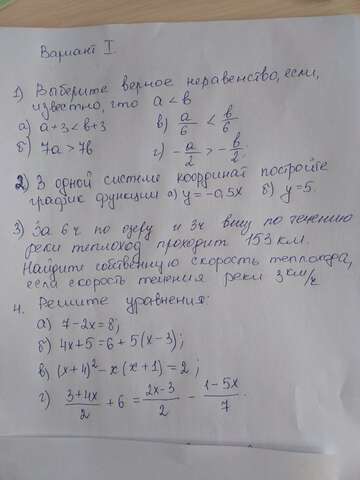 Вариант I.
1) Выберите верное неравенство, если,
известно, что a < b
а) a+3 < b+3 в) a/6 < b/6
б) 7a > 7b г) -a/2 > -b/2.
2) В одной системе координат постройте
график функции а) y = -0,5x б) y = 5.
3) За 6ч по озеру и 3ч вниз по течению
реки теплоход проходит 153 км.
Найдите собственную скорость теплохода,
если скорость течения реки 3 км/ч
4. Решите уравнения:
а) 7-2x = 8;
б) 4x+5 = 6+5(x-3);
в) (x+4)²-x(x+1) = 2;
г) (3+4x)/2 + 6 = (2x-3)/2 - (1-5x)/7.